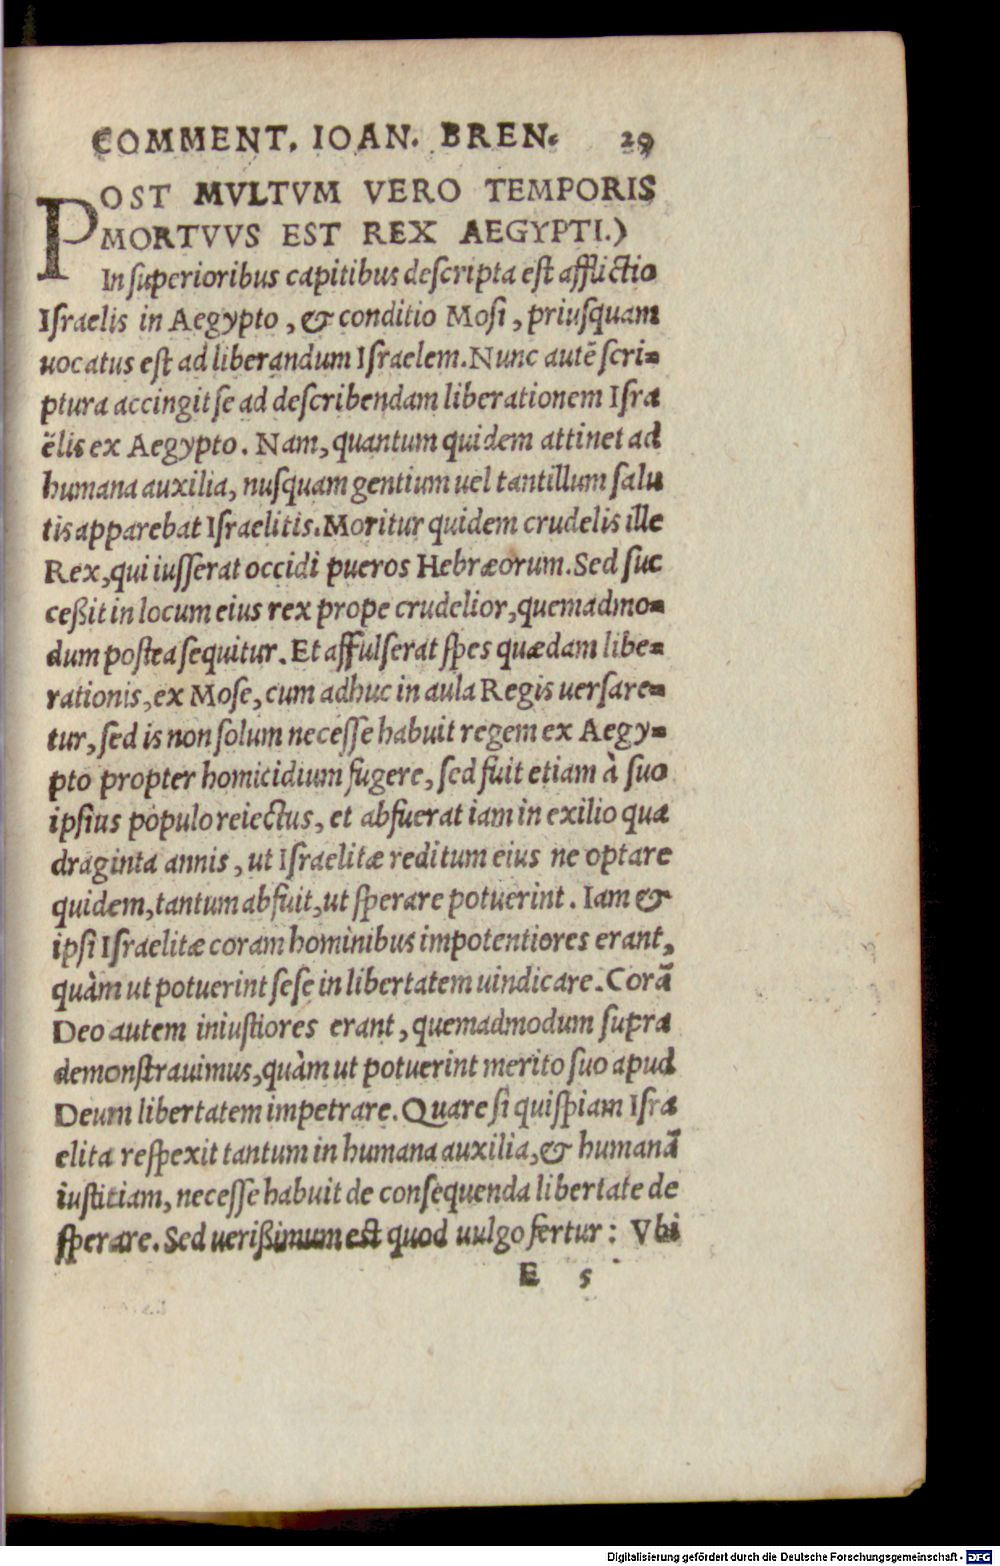 COMMENT. IOAN. BREN. 29
POST MVLTVM VERO TEMPORIS
MORTVVS EST REX AEGYPTI.)
In superioribus capitibus descripta est afflictio
Israelis in Aegypto, & conditio Mosi, priusquam
uocatus est ad liberandum Israelem. Nunc autẽ scri-
ptura accingit se ad describendam liberationem Isra
ẽlis ex Aegypto. Nam, quantum quidem attinet ad
humana auxilia, nusquam gentium uel tantillum salu
tis apparebat Israelitis. Moritur quidem crudelis ille
Rex, qui iusserat occidi pueros Hebræorum. Sed suc
ceßit in locum eius rex prope crudelior, quemadmo-
dum postea sequitur. Et affulserat spes quædam libe-
rationis, ex Mose, cum adhuc in aula Regis uersare-
tur, sed is non solum necesse habuit regem ex Aegy-
pto propter homicidium fugere, sed fuit etiam à suo
ipsius populo reiectus, et abfuerat iam in exilio qua
draginta annis, ut Israelitæ reditum eius ne optare
quidem, tantum abfuit, ut sperare potuerint. Iam &
ipsi Israelitæ coram hominibus impotentiores erant,
quàm ut potuerint sese in libertatem uindicare. Corã
Deo autem iniustiores erant, quemadmodum supra
demonstrauimus, quàm ut potuerint merito suo apud
Deum libertatem impetrare. Quare si quispiam Isra
elita respexit tantum in humana auxilia, & humanã
iustitiam, necesse habuit de consequenda libertate de
sperare. Sed uerißimum est quod uulgo fertur: Vbi
E 5
Digitalisierung gefördert durch die Deutsche Forschungsgemeinschaft - DFG